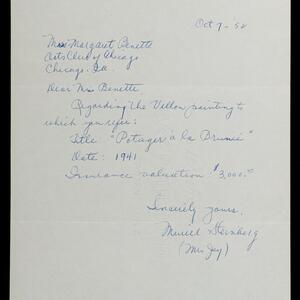 Oct 7 - '52
Miss Margaret Benette
Arts Club of Chicago
Chicago. Ill.
Dear Mrs Benette.
Regarding the Villon painting to
which you refer:
Title: "Potager à la Brunié"
Date: 1941
Insurance valuation $3,000.00
Sincerely yours.
Muriel Steinberg
(Mrs Jay)